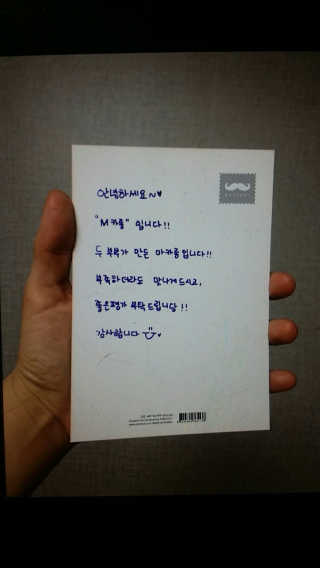 안녕하세요~♥
"M카롱" 입니다!!
두 부부가 만든 마카롱입니다!!
부족하더라도 맛나게드시고,
좋은평가 부탁드립니당!!
감사합니다